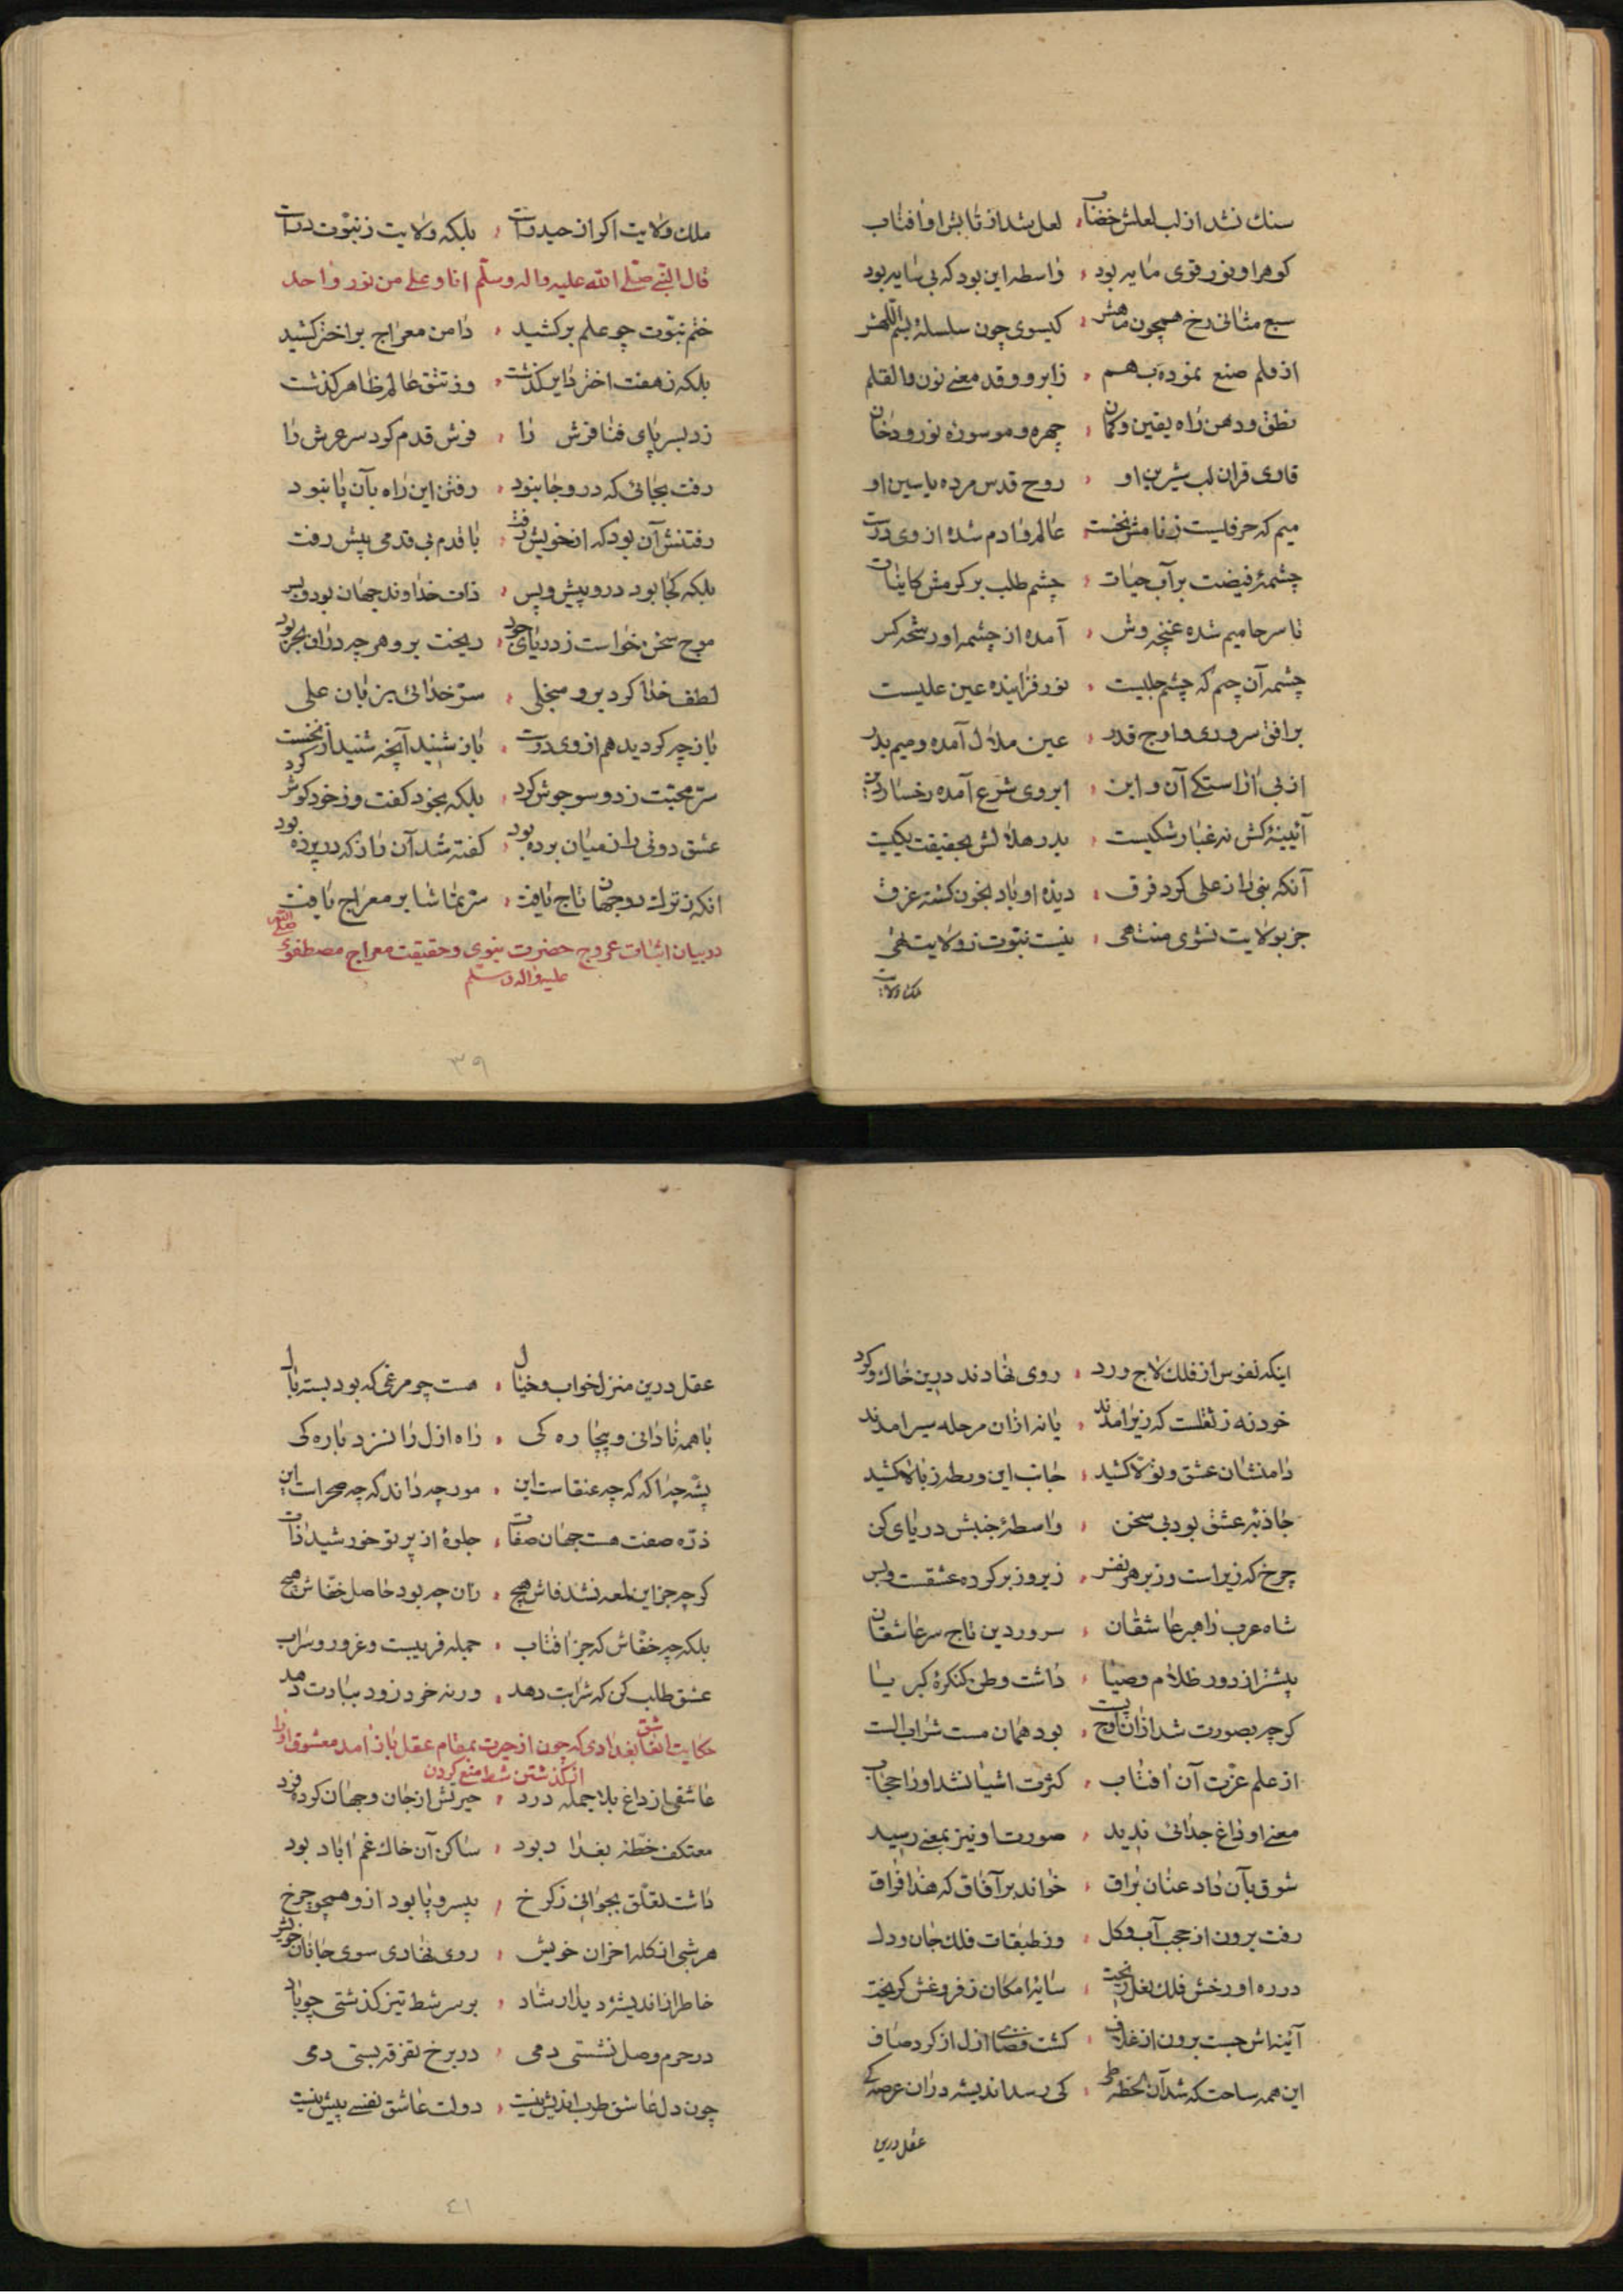 سنك نشد از لب لعلش خضاب لعل شد از تابش او افتاب
كوهر او نور قوی مایه بود واسطه این بود كه بی سایه بود
سبع مثانی رخ همچون مهش كیسوی چون سلسلۀ بسم اللهش
از قلم صنع نموده بهم زابرو و قد معنی نون والقلم
نطق و دهن راه یقین و كمان چهره و مو سورۀ نور و دخان
قاری قران لب شیرین او روح قدس مرده یاسین او
میم كه حرفیست ز نامش نخست عالم و ادم شده از وی درست
چشمۀ فیضت بر آب حیات چشم طلب بر كرمش كاینات
تا سر حا میم شده غنچه وش آمده از چشمه او رشحه كش
چشمه آن چم كه چشم جلیست نور فزاینده عین علیست
بر افق سروری و اوج قدر عین هلال آمده و میم بدر
از پی اراستكی آن و این ابروی شرع آمده رخسار دین
آئینۀ كش نه غبار شكیست بدر و هلالش بحقیقت یكیست
آنكه نبی را ز علی كرد فرق دیده او باد بخون كشته غرق
جز بولایت نشوی منتهی نیست نبوت ز ولایت تهی
ملك ولایت
ملك ولایت اكر از حیدر است بلكه ولایت ز نبوت در است
قال النبی صلی الله علیه واله وسلم انا و علی من نور واحد
ختم نبوت چو علم بركشید دامن معراج بر اختر كشید
بلكه ز هفت اختر دایر كذشت وز تتق عالم ظاهر كذشت
زد بسر پای فنا فرش را فرش قدم كرد سر عرش را
رفت بجائی كه درو جا نبود رفتن این راه بآن پا نبود
رفتنش آن بود كه از خویش رفت با قدم بی قدمی پیش رفت
بلكه كجا بود درو پیش و پس ذات خداوند جهان بود و بس
موج سخن خواست ز دریای جود ریخت برو هر چه دران بحر بود
لطف خدا كرد برو منجلی سر خدائی بزبان علی
باز چه كردید هم از وی درست باز شنید آنچه شنید از نخست
سر محبت ز دو سو جوش كرد بلكه بخود كفت و ز خود كوش كرد
عشق دوئی را ز میان برده بود كفته شد آن راز كه در پرده بود
انكه ز ترك دو جهان تاج یافت سر تماشا بر معراج یافت
در بیان اثبات عروج حضرت نبوی و حقیقت معراج مصطفوی صلی الله
علیه واله وسلم
٣٩
اینكه نفوس از فلك لاجورد روی نهادند درین خاك و كرد
خود نه ز ثقلست كه زیر امدند یا نه ازان مرحله سیر امدند
دامنشان عشق و تولا كشید جانب این ورطه ز بالا كشید
جاذبۀ عشق بود بی سخن واسطۀ جنبش دریای كن
چرخ كه زیر است و زبر هر نفس زیر و زبر كردۀ عشقست و بس
شاه عرب راهبر عاشقان سرور دین تاج سر عاشقان
پیشتر از دور ظلام و ضیا داشت وطن كنكرۀ كبریا
كرچه بصورت شد ازان اوج پست بود همان مست شراب الست
از علم عزت آن افتاب كثرت اشیا نشد او را حجاب
معنی او داغ جدائی ندید صورت او نیز بمعنی رسید
شوق بآن داد عنان براق خواند بر آفاق كه هذا فراق
رفت برون از حجب آب و كل وز طبقات فلك جان و دل
در ره او رخش فلك نعل ریخت سایۀ امكان ز فروغش كریخت
آینه اش جست برون از غلاف كشت فضای ازل از كرد صاف
این همه ساحت كه شد آن لحظه طی كی رسد اندیشه دران عرصه كی
عقل درین
عقل درین منزل خواب و خیال هست چو مرغی كه بود بسته بال
با همه نادانی و بیچاره كی راه ازل را نزد باره كی
پشه چه اكه كه چه عنقاست این مور چه داند كه چه صحراست این
ذره صفت هست جهان صفات جلوۀ از پرتو خورشید ذات
كرچه جز این لمعه نشد فاش هیچ زان چه بود حاصل خفاش هیچ
بلكه چه خفاش كه جز افتاب جمله فریبست و غرور و سراب
عشق طلب كن كه شرابت دهد ورنه خرد زود ببادت دهد
حكایت عاشق بغدادی كه چون از حیرت بمقام عقل باز امد معشوق او را
از كذشتن شط منع كردن
عاشقی از داغ بلا جمله درد حیرتش از جان و جهان كرده فرد
معتكف خطۀ بغداد بود ساكن آن خاك غم اباد بود
داشت تعلق بجوانی ز كرخ بیسر و پا بود ازو همچو چرخ
هر شبی از كلبه احزان خویش روی نهادی سوی جانان خویش
خاطر از اندیشۀ دیدار شاد بر سر شط تیز كذشتی چو باد
در حرم وصل نشستی دمی در برخ تفرقه بستی دمی
چون دل عاشق طرب اندیش نیست دولت عاشق نفسی بیش نیست
٤١